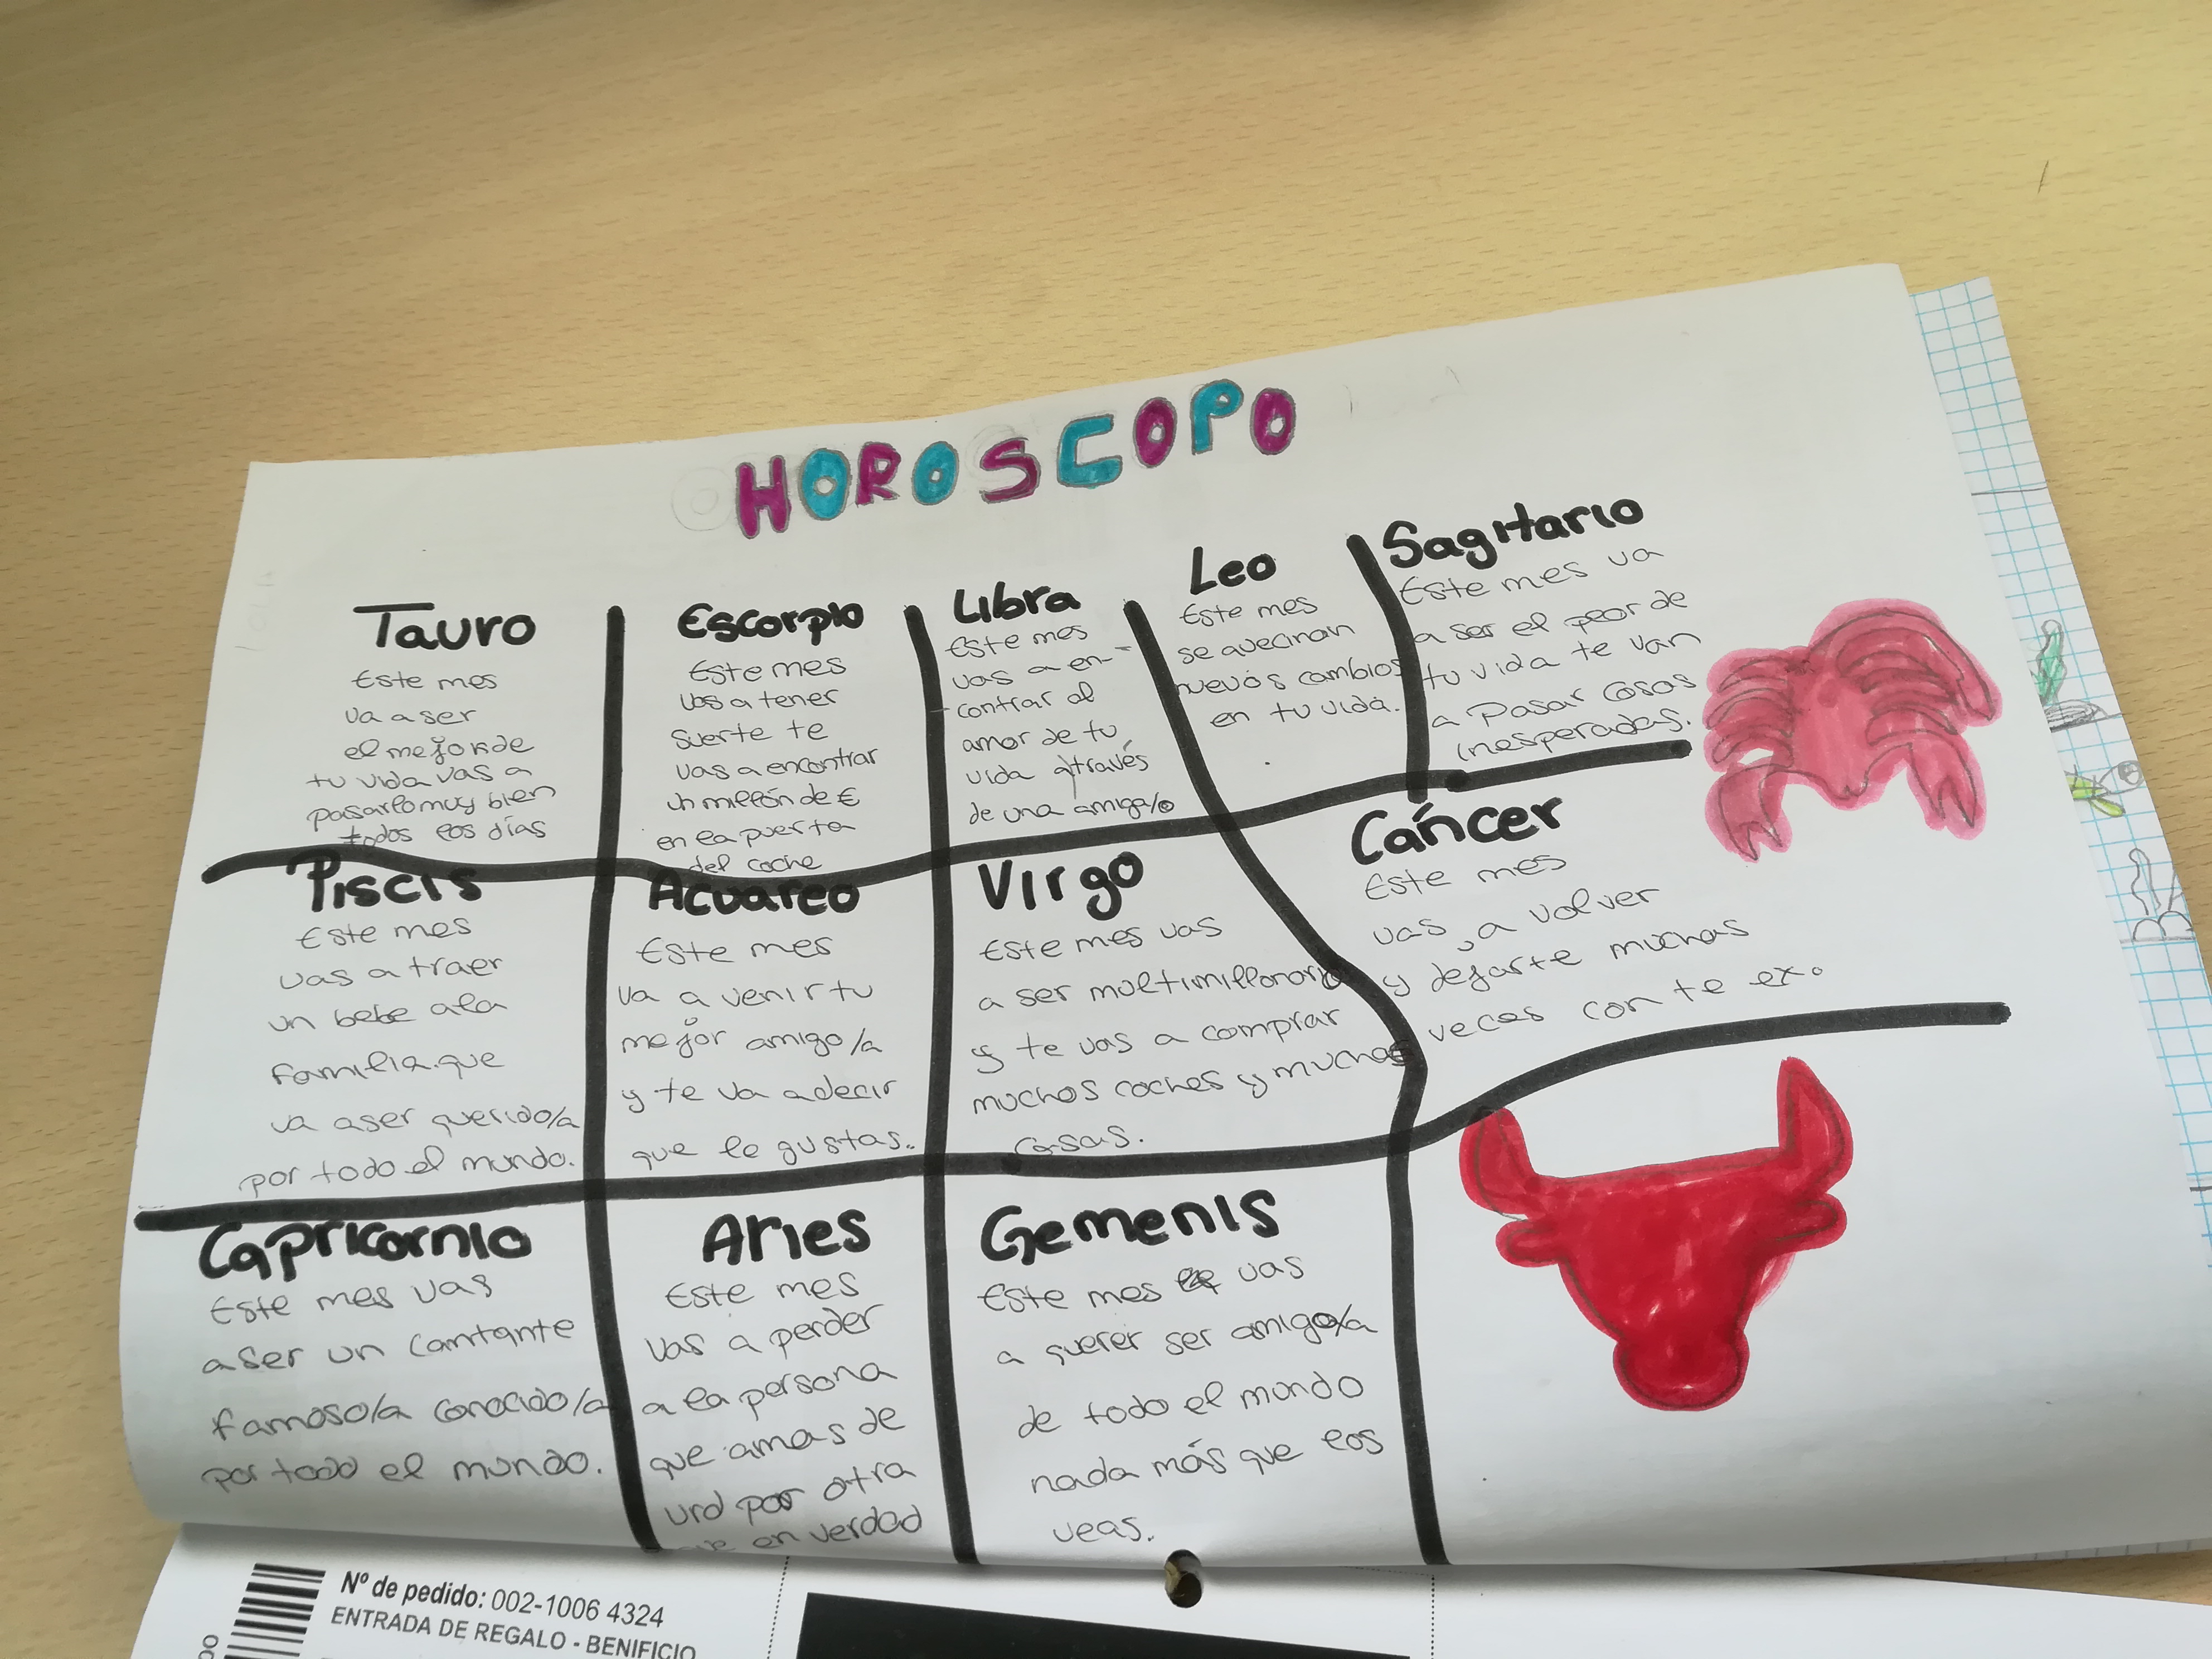 HOROSCOPO
Tauro
Este mes
va a ser
el mejor de
tu vida vas a
pasarlo muy bien
todos los días
Escorpio
Este mes
vas a tener
suerte te
vas a encontrar
un millón de €
en la puerta
del coche
Libra
Este mes
vas a en-
contrar al
amor de tu
vida através
de una amiga/o
Leo
Este mes
se avecinan
nuevos cambios
en tu vida.
Sagitario
Este mes va
a ser el peor de
tu vida te van
a pasar cosas
inesperadas.
Piscis
Este mes
vas a traer
un bebe a la
familia.que
va a ser querido/a
por todo el mundo.
Acuareo
Este mes
va a venir tu
mejor amigo/a
y te va a decir
que le gustas.
Virgo
Este mes vas
a ser multimillonario
y te vas a comprar
muchos coches y muchas
casas.
Cáncer
Este mes
vas a volver
y dejarte muchas
veces con te ex.
Capricornio
Este mes vas
a ser un cantante
famoso/a conocido/a
por todo el mundo.
Aries
Este mes
vas a perder
a la persona
que amas de
por otra
en verdad
Gemenis
Este mes vas
a querer ser amigo/a
de todo el mundo
nada más que los
veas.
Nº de pedido: 002-1006 4324
ENTRADA DE REGALO - BENIFICIO